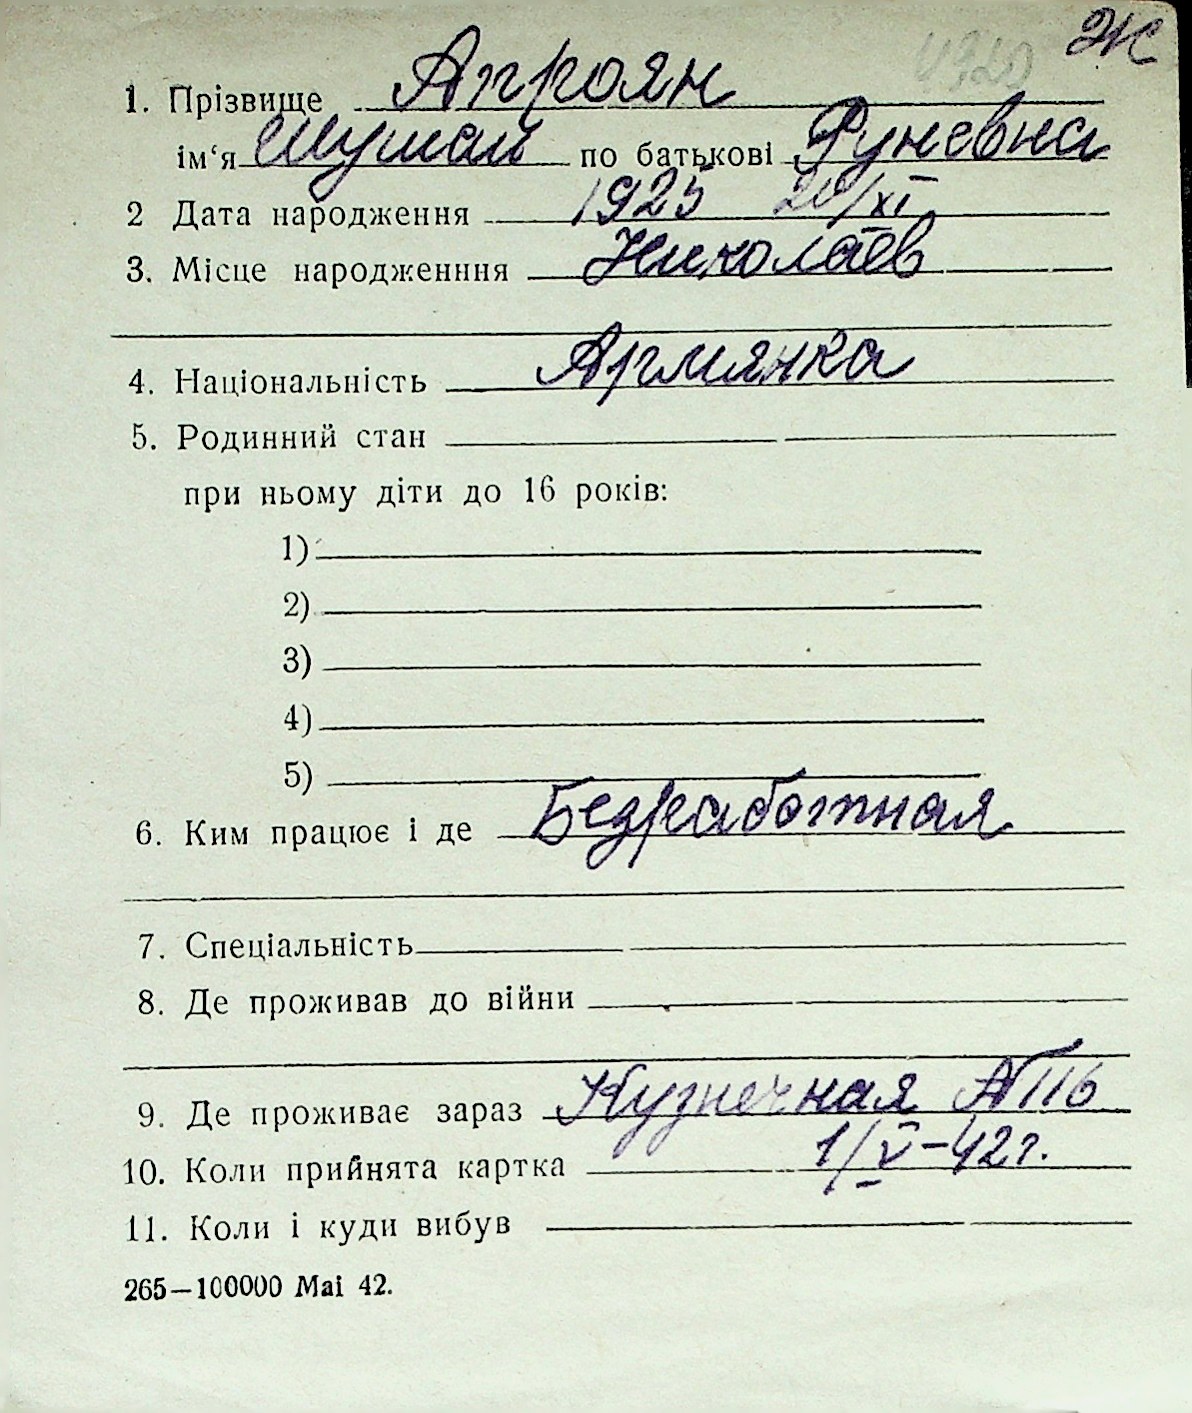 Ж
1. Прізвище Апроян
ім‘я Шушай по батькові Руневна
2 Дата народження 1925 20/XI
3. Місце народженння Николаев
4. Національність Армянка
5. Родинний стан
при ньому діти до 16 років:
1)
2)
3)
4)
5)
6. Ким працює і де Безработная
7. Спеціальність
8. Де проживав до війни
9. Де проживає зараз Кузнечная №116
10. Коли прийнята картка 1/V-42г.
11. Коли і куди вибув
265—100000 Mai 42.